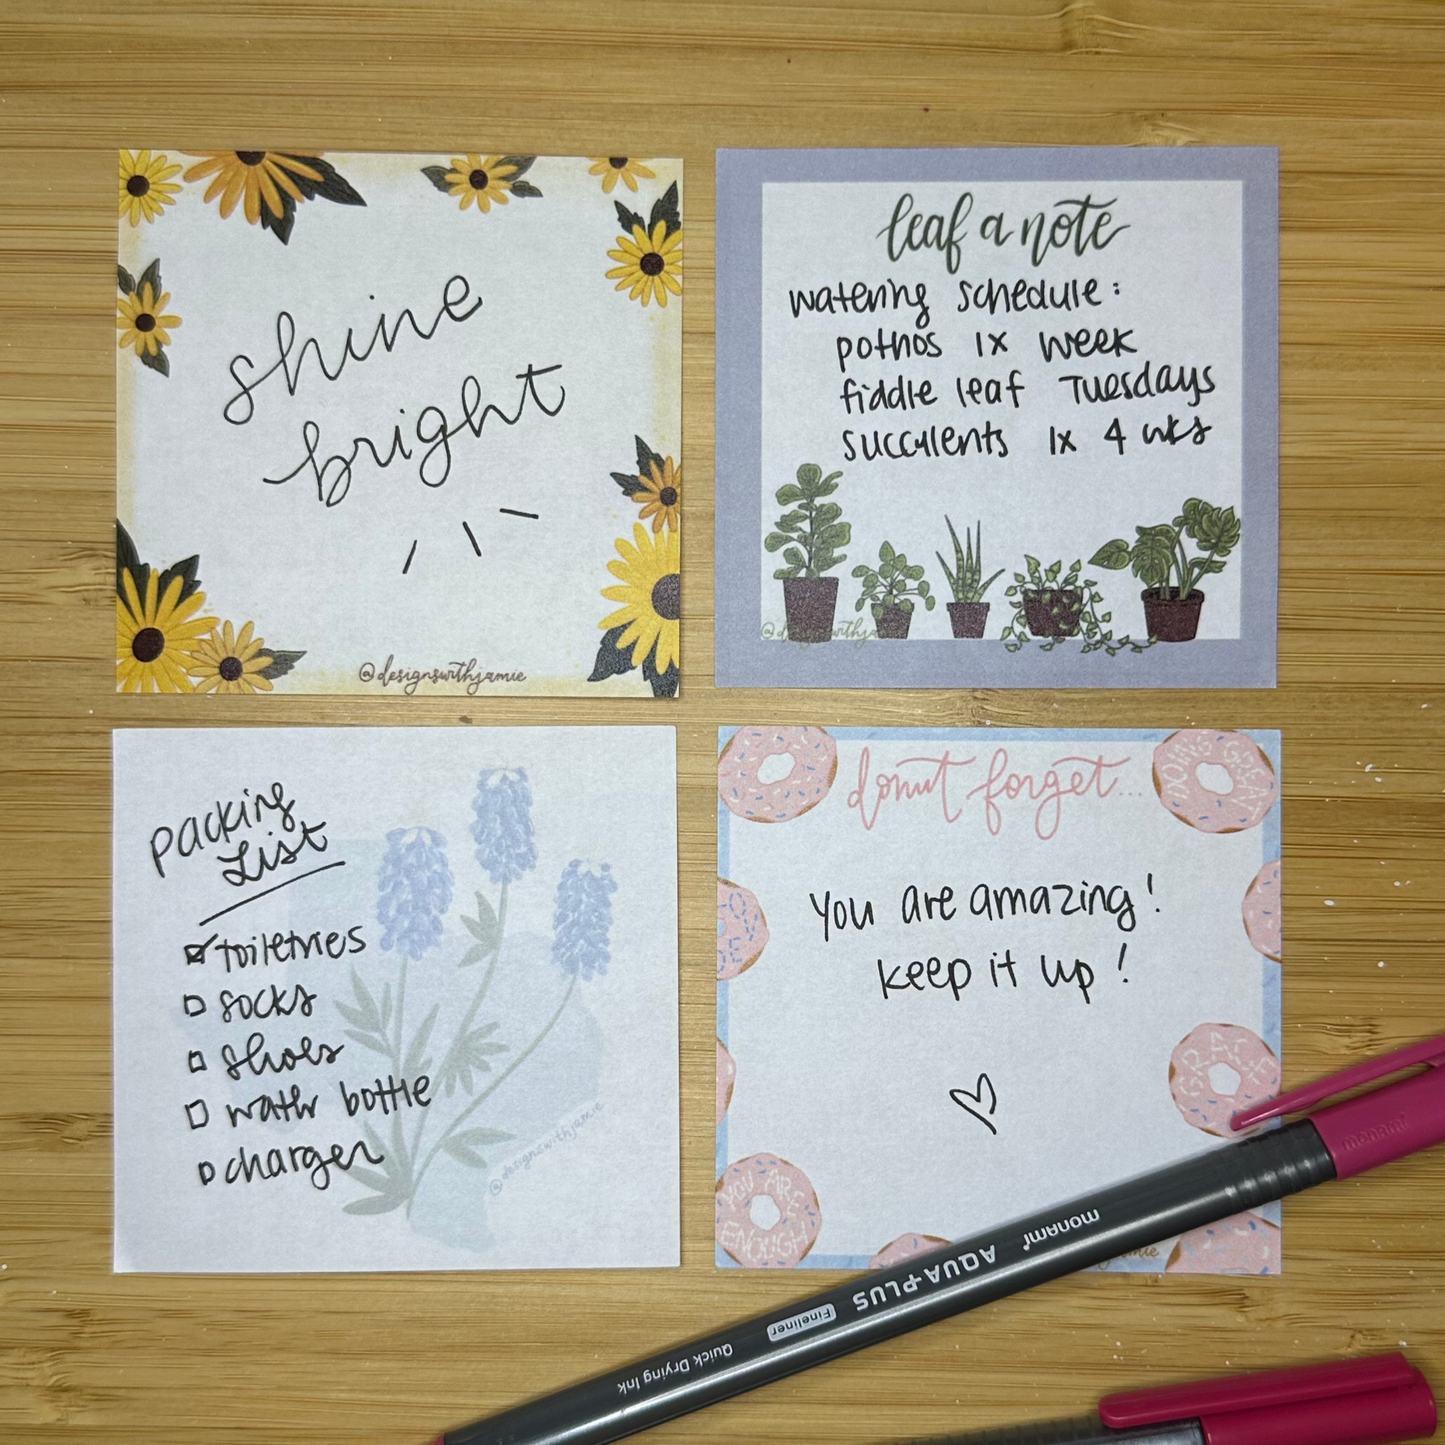 shine
bright
@designswithjamie
leaf a note
watering schedule:
pothos 1x week
fiddle leaf Tuesdays
succulents 1x 4 wks
@designswithja
Packing
List
toiletries
socks
shoes
water bottle
charger
@designswithjamie
donut forget...
DOING GREAT
You are amazing!
keep it up!
GRACE
YOU ARE
ENOUGH
jamie
monami
monami
AQUA-PLUS
Fineliner
Quick Drying Ink